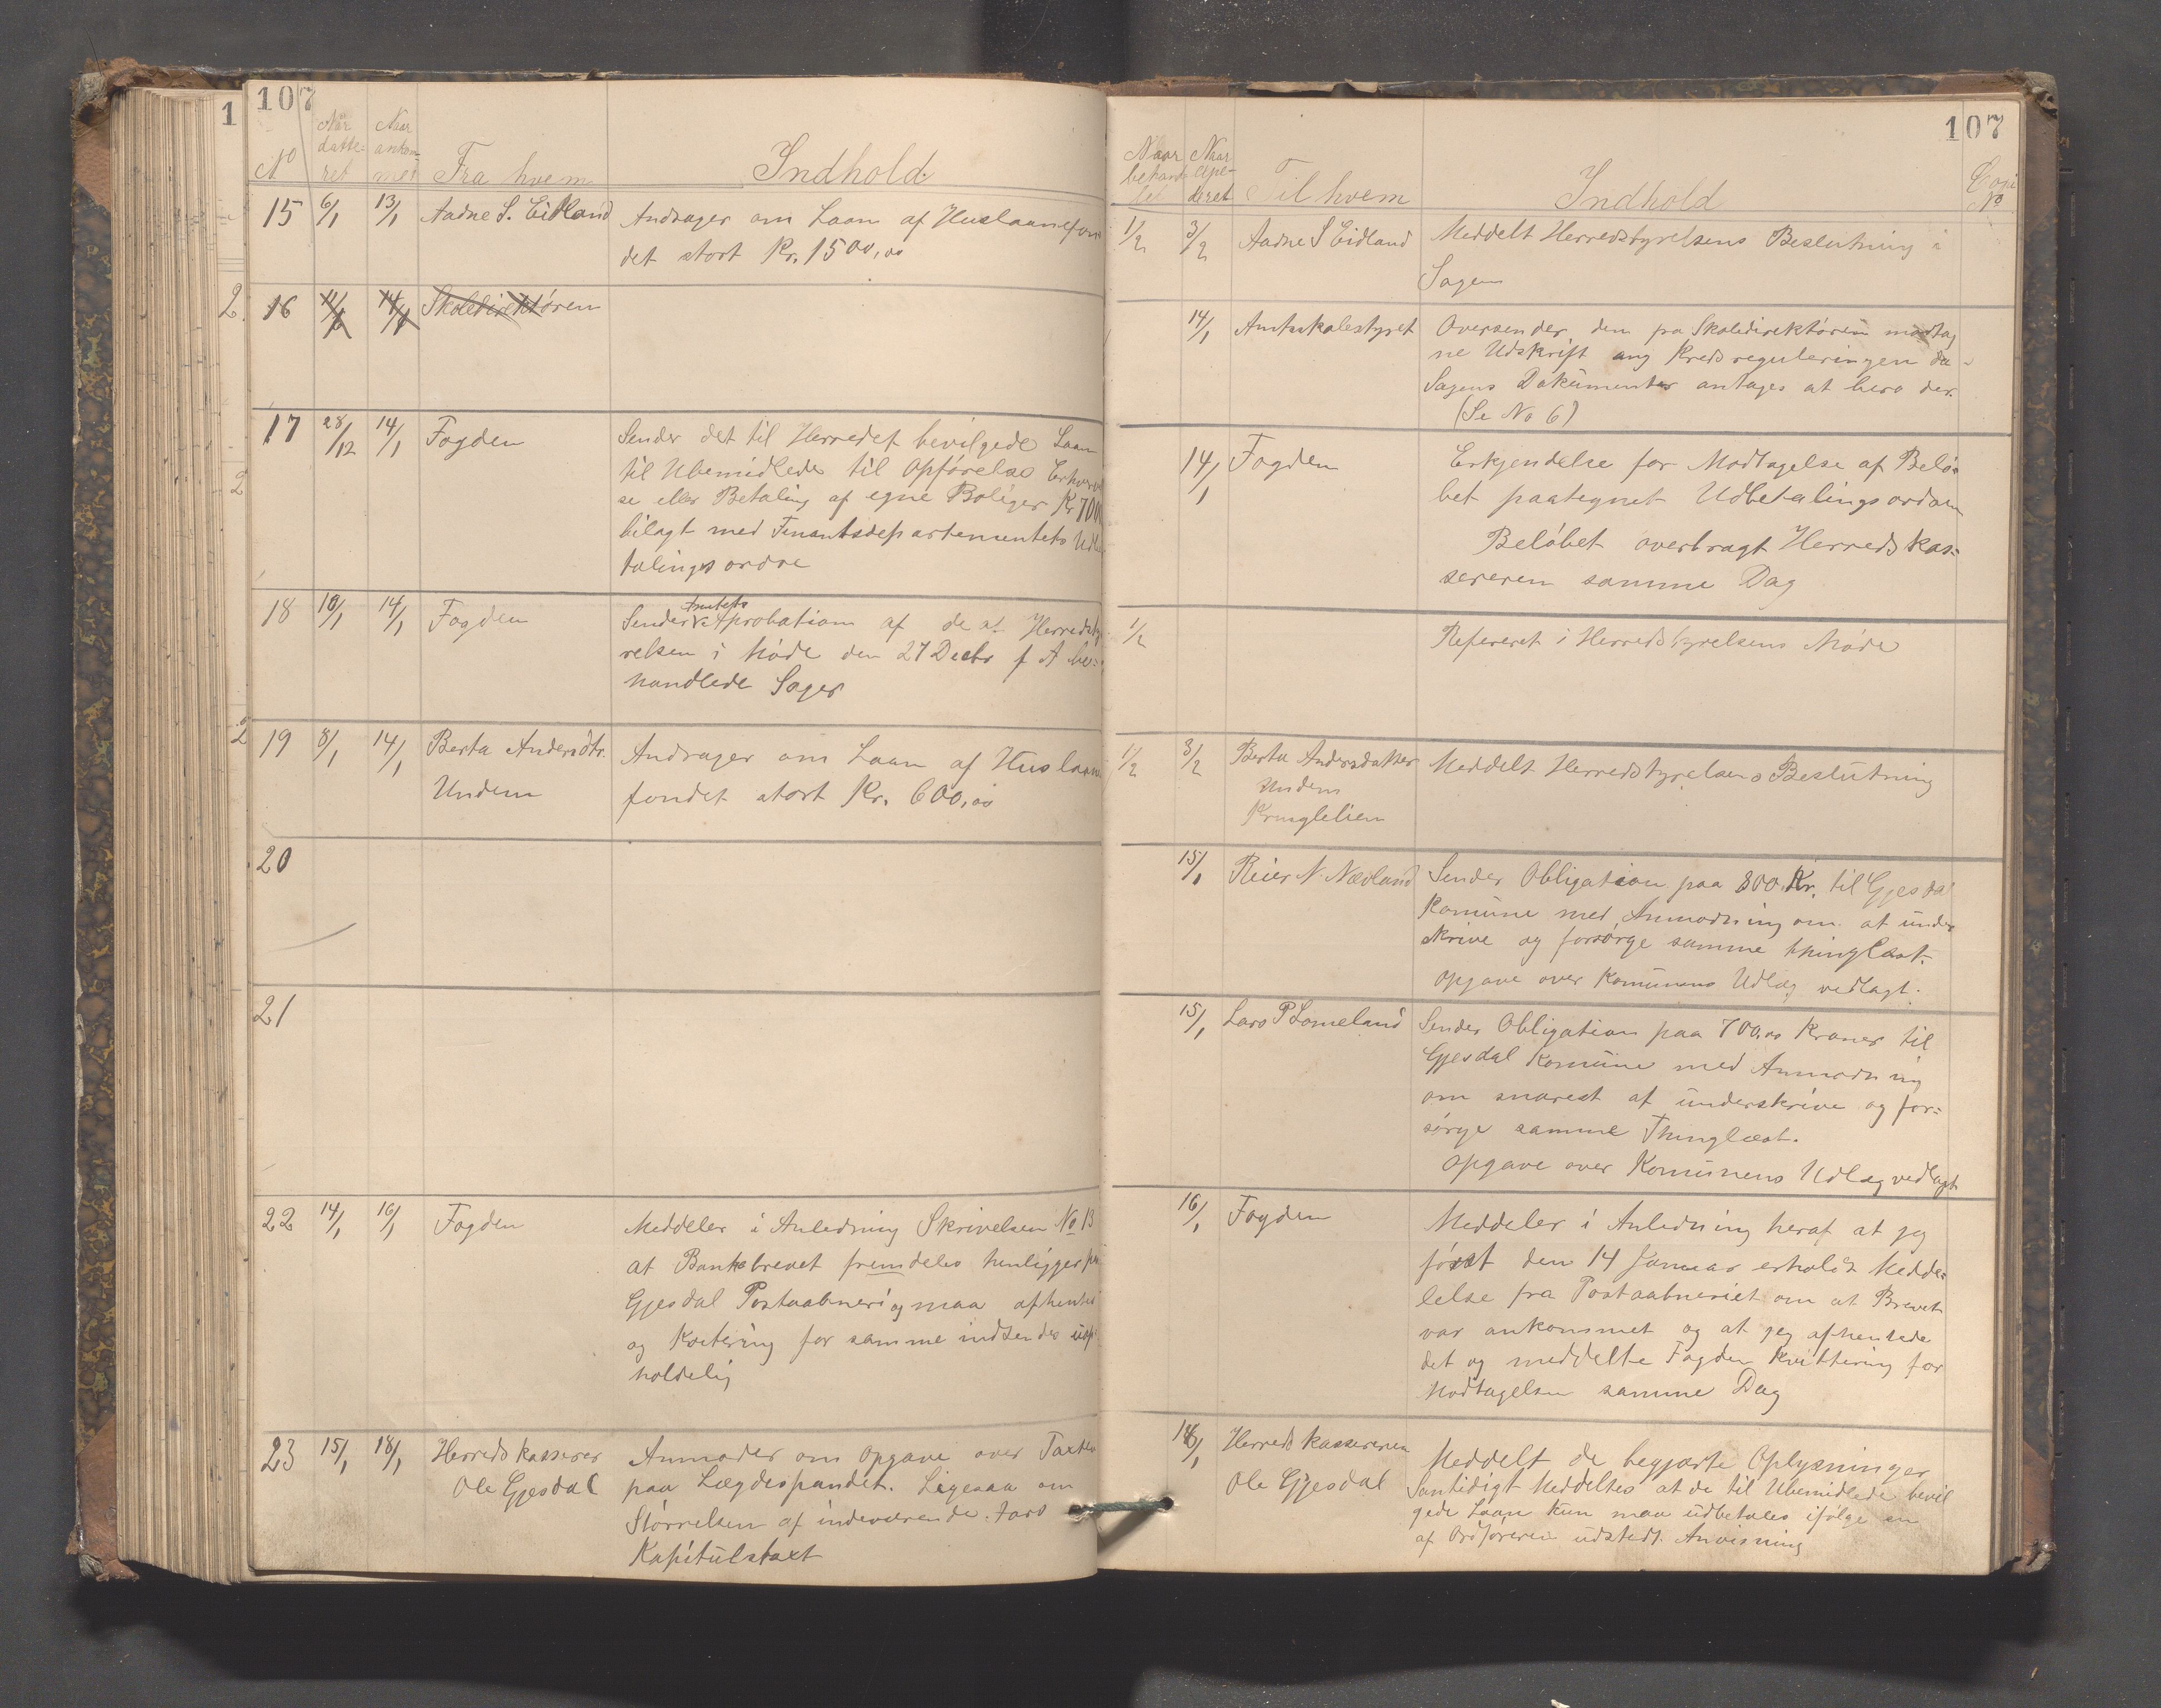 107
No
Naar datte-ret
Naar ankom-met
Fra hvem
Indhold
15 6/1 13/1 Aadne S. Eidland
Andrager om Laan af Huslaanefon
det stort Kr. 1500,00
16 14/1 Skoledirektøren
17 28/12 14/1 Fogden
Sender det til Herredet bevilgede Laan
til Ubemidlede til Opførelse Erhver
se eller Betaling af egne Boliger Kr 700
bilagt med Finantsdepartementets Udb
talingsordre
18 10/1 14/1 Fogden
Amtets
Sender Aprobation af de at Herredsty
relsen i Møde den 27 Decbr f A be-
handlede Sager
19 8/1 14/1 Berta Andersdtr.
Undem
Andrager om Laan af Huslaane
fondet stort Kr. 600,00
20
21
22 14/1 16/1 Fogden
Meddeler i Anledning Skrivelsen No 13
at Bankobrevet fremdeles henligger paa
Gjesdal Postaabneri og maa afhentes
og Kvitering for samme indsendes uop
holdelig
23 15/1 18/1 Herredskasserer
Ole Gjesdal
Anmoder om Opgave over Taxten
paa Lægdespandet. Ligesaa om
Størrelsen af indeværende Aars
Kapitulstaxt
107
Naar behand-let
Naar expe-deret
Til hvem
Indhold
Copi No
1/2 3/2 Aadne S Eidland
Meddelt Herredstyrelsens Beslutning i
Sagen
14/1 Amtsskolestyret
Oversender den fra Skoledirektøren modtag
ne Udskrift ang Kredsreguleringen da
Sagens Dokumenter antages at bero der.
(Se No 6)
14/1 Fogden
Erkjendelse for Modtagelse af Belø-
bet paategnet Udbetalingsordren
Beløbet overbragt Herredskas-
sereren samme Dag
1/2
Refereret i Herredstyrelsens Møde
1/2 3/2 Berta Andersdatter
Undem
Kringlelien
Meddelt Herredstyrelsens Beslutning
15/1 Reier N. Nævland
Sender Obligation paa 800 Kr. til Gjesdal
Komune med Anmodning om at under
skrive og forsørge samme thinglæst.
Opgave over Komunens Udlæg vedlagt.
15/1 Lars P Lomeland
Sender Obligation paa 700,00 Kroner til
Gjesdal Komune med Anmodning
om snarest at underskrive og for-
sørge samme Thinglæst.
Opgave over Komunens Udlæg vedlagt
16/1 Fogden
Meddeler i Anledning heraf at jeg
først den 14 Januar erholdt Medde-
lelse fra Postaabneriet om at Brevet
var ankommet og at jeg afhentede
det og meddelte Fogden Kvittering for
Modtagelsen samme Dag
18/1 Herredskassereren
Ole Gjesdal
Meddelt de begjærte Oplysninger
Samtidigt Meddeltes at de til Ubemidlede bevil
gede Laan kun maa udbetales ifølge en
af Ordføreren udstedt Anvisning